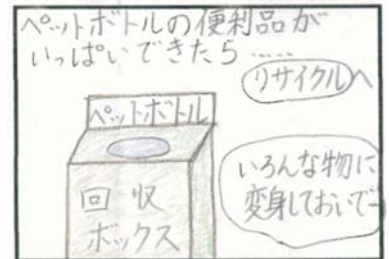 ペットボトルの便利品が
いっぱいできたら……
リサイクルへ
ペットボトル
回収
ボックス
いろんな物に
変身しておいでー